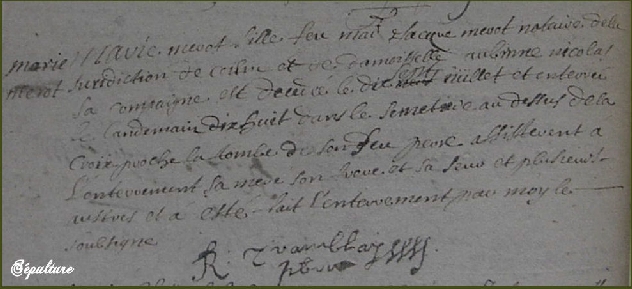 marie Marie merot fille feu mai Jacque merot notaire de la
merot Jurediction de et de damoiselle aubinne nicolas
sa compaigne est decedé le dix sept juillet et enterrée
le landemain dix huit dans le semetiere au dessus de la
Croix proche la tombe de son feu pere assisterent a
l'enterrement sa mere son frere et sa seur et plusieurs
autres et a esté fait l'enterrement par moy le
soubsigné
R. Tramblay
pbre
Sépulture